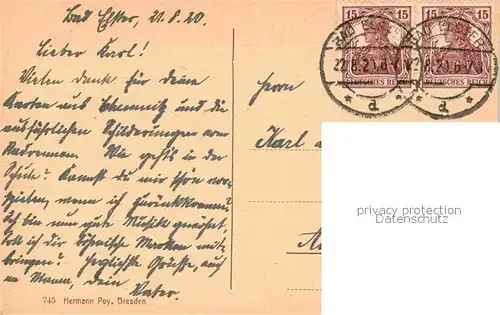 Bad Elster, 21.8.20.
Lieber Karl!
Vielen Dank für deine
Karten aus Chemnitz und die
ausführlichen Schilderungen vom
Radrennen. Wie geht's in der
Schule? Kannst du mir schon vor-
spielen, wenn ich zurückkomme?
Ich bin nun gute Musik gewöhnt.
Soll ich dir böhmische Marken mit-
bringen? Herzlichste Grüsse, auch
an Mama, Dein
Vater.
745 Hermann Poy, Dresden
15 15 15 15
BAD ELSTER
22.8.20.6-7V
DEUTSCHES REICH
* d *
BAD ELSTER
22.8.20.6-7V
DEUTSCHES REICH
* d *
Herrn
Karl
privacy protection
Datenschutz